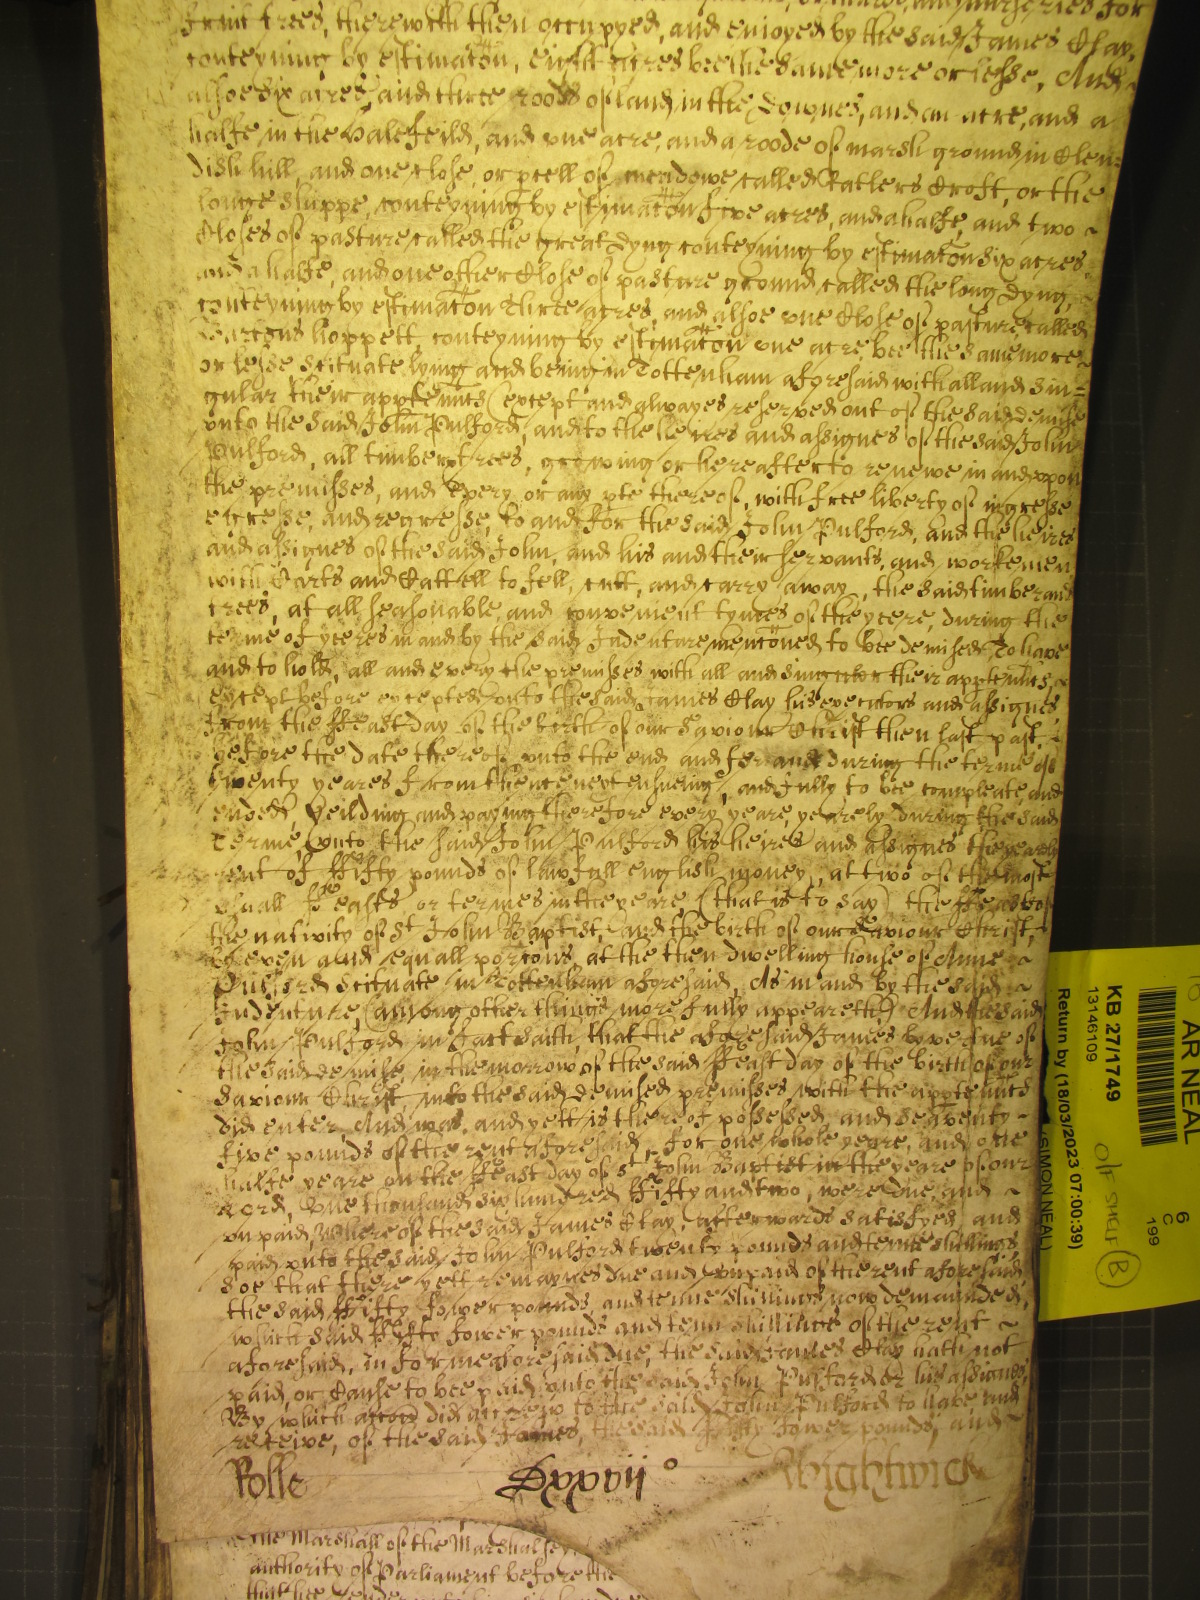 fruit trees, therewith then occupyed, and enioyed by the said James Clay,
conteyning by estimac̃on, eight acres bee the same more or lesse, And
alsoe six acres, and three roods of land in the Downes, and an acre, and a
halfe in the Halefeild, and one acre, and a roode of marsh ground in Clen=
dish hill, and one close, or pcell of meadowe called Ratlers Croft, or the
longe slippe, conteyning by estimac̃on five acres, and a halfe, and two
Closes of pasture called the great dyng conteyning by estimac̃on six acres
and a halfe, and one other Close of pasture ground, called the long dyng,
conteyning by estimac̃on three acres, and alsoe one Close of pasture called
hoppett, conteyning by estimac̃on one acre, bee the same more
or lesse scituate, lying and being in Tottenham aforesaid with all and sin=
gular their apptenñts (except and alwayes reserved out of the said demise
vnto the said John Pulford, and to the heires and assignes of the said John
Pulford, all timber trees, growing or hereafter to renewe in and vppon
the premisses, and every, or any pte thereof, with free liberty of ingresse
egresse, and regresse, to and for the said John Pulford, and the heires
and assignes of the said John, and his and their servants, and workemen
with Carts and Cattell to fell, cutt, and carry away, the said timber and
trees, at all seasonable, and convenient tymes of the yeere, during the
terme of yeeres in and by the said Indenture menc̃oned to bee demised, To have
and to hold, all and every the premisses with all and singuler their apptenñts,
except before excepted, vnto the said James Clay his executors and assignes,
from the ffeast day of the birth of our Saviour Christ then last past,
before the date thereof, vnto the end, and for and during the terme of
twenty yeares from thence next ensueing, and fully to bee compleate and
ended, Yeilding and paying therefore every yeare, yearely during the said
Terme, vnto the said John Pulford his heires and assignes the yearely
rent of ffifty pounds of lawfull english money, at two of the most
vsuall ffeasts or termes in the yeare (that is to say) the ffeasts of
the nativity of St John Baptist, and the birth of our Saviour Christ,
by even and equall porc̃ons, at the then dwelling house of Anne
Pulford scituate in Tottenham aforesaid, As in and by the said
Indenture, (among other things more fully appeareth) And the said
John Pulford in fact saith, that the aforesaid James by vertue of
the said demise, in the morrow of the said ffeast day of the birth of our
Saviour Christ into the said demised premisses with the apptenñts
did enter, And was, and yett is thereof possessed, and seaventy
five pounds of the rent aforesaid, for one whole yeare, and one
halfe yeare on the ffeast day of St John Baptist in the yeare of our
Lord, One thousand six hundred ffifty and two, were due, and
vnpaid, Whereof the said James Clay, afterwards satisfyed, and
paid vnto the said John Pulford twenty pounds and tenne shillings
Soe that there yett remaynes due and vnpaid of the rent aforesaid
the said ffifty fower pounds, and tenne shillings now demaunded,
which said ffifty fower pounds and tenn shillings of the rent
aforesaid, in forme aforesaid due, the said James Clay hath not
paid, or Cause to bee paid vnto the said John Pulford or his assignes,
By which acc̃on did accrew to the said John Pulford to have, and
receive, of the said James, the said ffifty fower pounds, and
Rolle Dxxvijo Wightwick
the Marshall of the Marshalsey
authority of Parliament before the
that hee render
AR NEAL
KB 27/1749
13146109
Return by (18/03/2023 07:00:39)
(SIMON NEAL)
6
C
199
off shelf
B